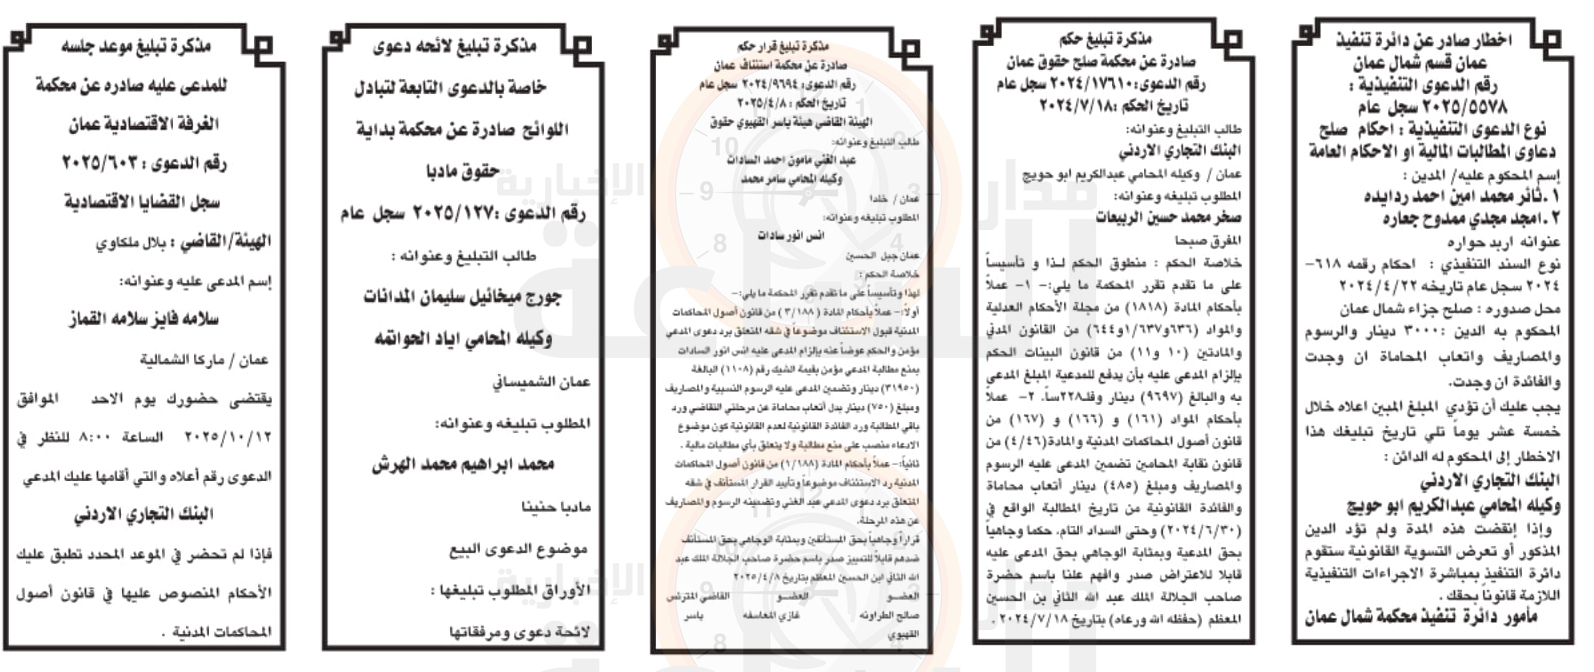 اخطار صادر عن دائرة تنفيذ
عمان قسم شمال عمان
رقم الدعوى التنفيذية :
٢٠٢٥/٥٥٧٨ سجل عام
نوع الدعوى التنفيذية : احكام صلح
دعاوى المطالبات المالية او الاحكام العامة
إسم المحكوم عليه/ المدين :
١.ثائر محمد امين احمد ردايده
٢.امجد مجدي ممدوح جعاره
عنوانه اربد حواره
نوع السند التنفيذي : احكام رقمه ٦١٨-
٢٠٢٤ سجل عام تاريخه ٢٠٢٤/٤/٢٢
محل صدوره : صلح جزاء شمال عمان
المحكوم به الدين :٣٠٠٠ دينار والرسوم
والمصاريف واتعاب المحاماة ان وجدت
والفائدة ان وجدت.
يجب عليك أن تؤدي المبلغ المبين اعلاه خلال
خمسة عشر يوماً تلي تاريخ تبليغك هذا
الاخطار إلى المحكوم له الدائن :
البنك التجاري الاردني
وكيله المحامي عبدالكريم ابو حويج
وإذا إنقضت هذه المدة ولم تؤد الدين
المذكور أو تعرض التسوية القانونية ستقوم
دائرة التنفيذ بمباشرة الاجراءات التنفيذية
اللازمة قانوناً بحقك .
مأمور دائرة تنفيذ محكمة شمال عمان
مذكرة تبليغ حكم
صادرة عن محكمة صلح حقوق عمان
رقم الدعوى:٢٠٢٤/١٧٦١٠ سجل عام
تاريخ الحكم :٢٠٢٤/٧/١٨
طالب التبليغ وعنوانه:
البنك التجاري الاردني
عمان / وكيله المحامي عبدالكريم ابو حويج
المطلوب تبليغه وعنوانه:
صخر محمد حسين الربيعات
المفرق صبحا
خلاصة الحكم : منطوق الحكم لذا و تأسيساً
على ما تقدم تقرر المحكمة ما يلي:- ١- عملاً
بأحكام المادة (١٨١٨) من مجلة الأحكام العدلية
والمواد (٦٣٦و٦٣٧/١و٦٤٤) من القانون المدني
والمادتين (١٠ و١١) من قانون البينات الحكم
بإلزام المدعى عليه بأن يدفع للمدعية المبلغ المدعى
به والبالغ (٩٦٩٧) دينار و٢٢٨فلساً. ٢- عملاً
بأحكام المواد (١٦١) و (١٦٦) و (١٦٧) من
قانون أصول المحاكمات المدنية والمادة(٤/٤٦) من
قانون نقابة المحامين تضمين المدعى عليه الرسوم
والمصاريف ومبلغ (٤٨٥) دينار أتعاب محاماة
والفائدة القانونية من تاريخ المطالبة الواقع في
(٢٠٢٤/٦/٣٠) وحتى السداد التام. حكما وجاهياً
بحق المدعية وبمثابة الوجاهي بحق المدعى عليه
قابلا للاعتراض صدر وافهم علنا باسم حضرة
صاحب الجلالة الملك عبد الله الثاني بن الحسين
المعظم (حفظه الله ورعاه) بتاريخ ٢٠٢٤/٧/١٨ .
مذكرة تبليغ قرار حكم
صادرة عن محكمة استئناف عمان
رقم الدعوى: ٢٠٢٤/٩٦٩٤ سجل عام
تاريخ الحكم : ٢٠٢٥/٤/٨
الهيئة القاضي هيئة ياسر القهيوي حقوق
طالب التبليغ وعنوانه:
عبد الغني مامون احمد السادات
وكيله المحامي سامر محمد
عمان / خلدا
المطلوب تبليغه وعنوانه:
انس انور سادات
عمان جبل الحسين
خلاصة الحكم :
لهذا وتأسيساً على ما تقدم تقرر المحكمة ما يلي:-
أولا:- عملاً بأحكام المادة (٣/١٨٨) من قانون أصول المحاكمات
المدنية قبول الاستئناف موضوعاً في شقه المتعلق برد دعوى المدعي
مؤمن والحكم عوضاً عنه بإلزام المدعى عليه انس انور السادات
بمنع مطالبة المدعي مؤمن بقيمة الشيك رقم (١١٠٨) البالغة
(٣١٩٥٠) دينار وتضمين المدعى عليه الرسوم النسبية والمصاريف
ومبلغ (٧٥٠) دينار بدل أتعاب محاماة عن مرحلتي التقاضي ورد
باقي المطالبة ورد الفائدة القانونية لعدم القانونية كون موضوع
الادعاء منصب على منع مطالبة ولا يتعلق بأي مطالبات مالية .
ثانياً:- عملاً بأحكام المادة (١/١٨٨) من قانون أصول المحاكمات
المدنية رد الاستئناف موضوعاً وتأييد القرار المستأنف في شقه
المتعلق برد دعوى المدعي عبد الغني وتضمينه الرسوم والمصاريف
عن هذه المرحلة.
قراراً وجاهياً بحق المستأنفين وبمثابة الوجاهي بحق المستأنف
ضدهم قابلاً للتمييز صدر باسم حضرة صاحب الجلالة الملك عبد
الله الثاني ابن الحسين المعظم بتاريخ ٢٠٢٥/٤/٨
العضو العضو القاضي المترئس
صالح الطراونه غازي المعاسفه ياسر
القهيوي
مذكرة تبليغ لائحه دعوى
خاصة بالدعوى التابعة لتبادل
اللوائح صادرة عن محكمة بداية
حقوق مادبا
رقم الدعوى :٢٠٢٥/١٢٧ سجل عام
طالب التبليغ وعنوانه :
جورج ميخائيل سليمان المدانات
وكيله المحامي اياد الحواتمه
عمان الشميساني
المطلوب تبليغه وعنوانه:
محمد ابراهيم محمد الهرش
مادبا حنينا
موضوع الدعوى البيع
الأوراق المطلوب تبليغها :
لائحة دعوى ومرفقاتها
مذكرة تبليغ موعد جلسه
للمدعى عليه صادره عن محكمة
الغرفة الاقتصادية عمان
رقم الدعوى : ٢٠٢٥/٦٠٣
سجل القضايا الاقتصادية
الهيئة/القاضي : بلال ملكاوي
إسم المدعى عليه وعنوانه:
سلامه فايز سلامه القماز
عمان / ماركا الشمالية
يقتضى حضورك يوم الاحد الموافق
٢٠٢٥/١٠/١٢ الساعة ٨:٠٠ للنظر في
الدعوى رقم أعلاه والتي أقامها عليك المدعي
البنك التجاري الاردني
فإذا لم تحضر في الموعد المحدد تطبق عليك
الأحكام المنصوص عليها في قانون أصول
المحاكمات المدنية .